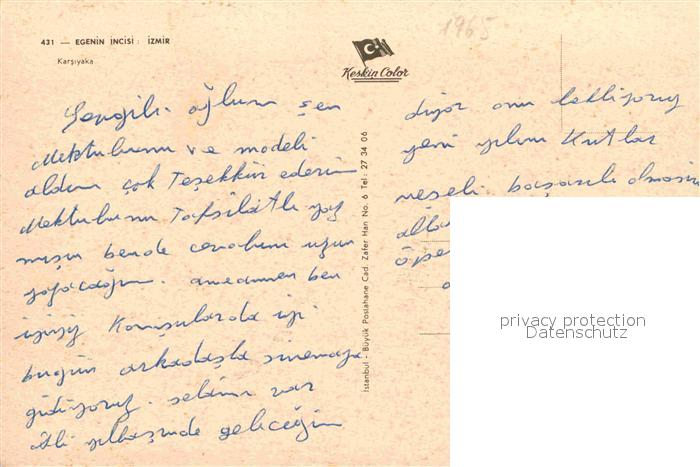 1965
431 — EGENİN İNCİSİ : İZMİR
Karşıyaka
Keskin Color
Sevgili oğlum şen
Mektubunu ve modeli
aldım çok teşekkür ederim
Mektubunu Tafsilatlı yaz
mışın bende cevabını uzun
yazacağım. anneannen ben
iyiyiz Komşularda iyi
bugün arkadaşla sinemaya
gidiyoruz. selamı var
Ali yılbaşında geleceğim
diyor onu bekliyoruz
yeni yılını Kutlar
neşeli başarılı olmasını
İstanbul - Büyük Postahane Cad. Zafer Han No. 6 Tel : 27 34 06
privacy protection
Datenschutz